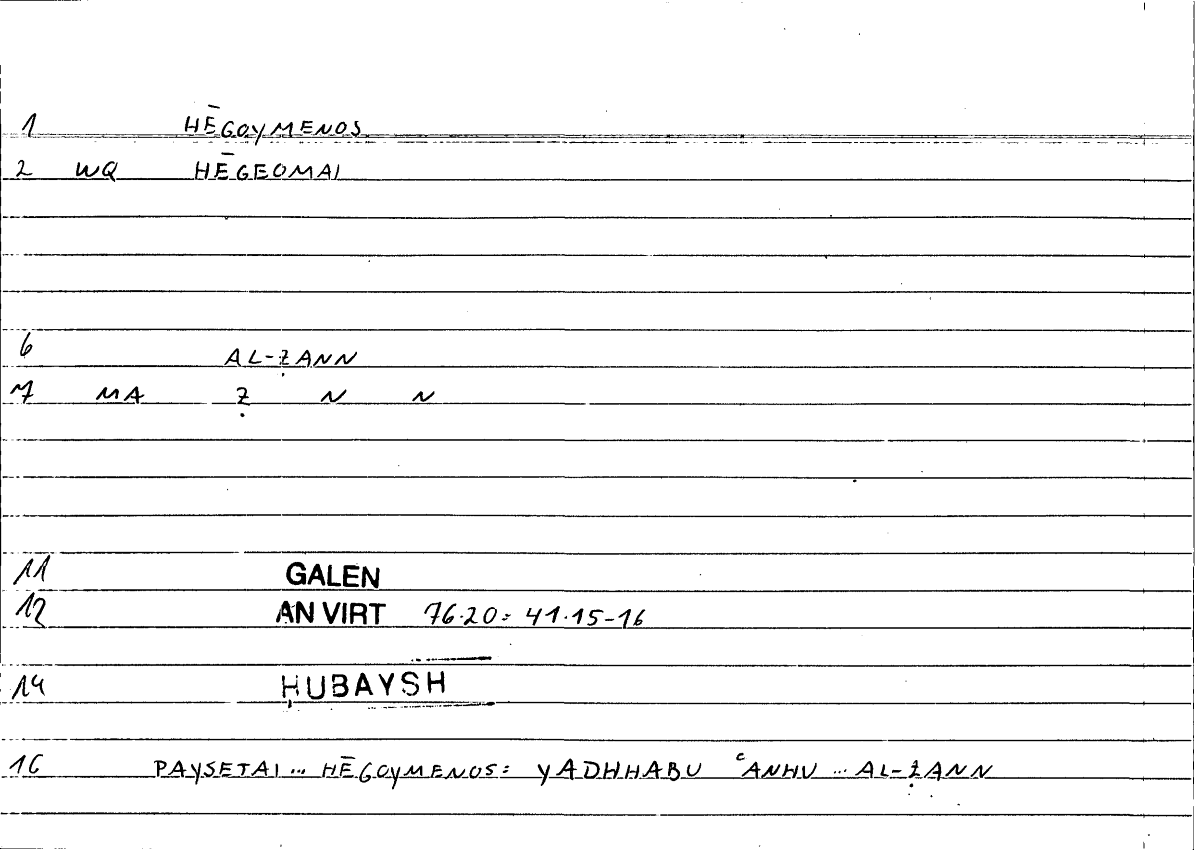 1 HĒGOYMENOS
2 WQ HĒGEOMAI
6 AL-ẒANN
7 MA Ẓ N N
11 GALEN
12 AN VIRT 76.20 = 41.15-16
14 ḤUBAYSH
16 PAYSETAI ... HĒGOYMENOS: YADHHABU ʿANHU ... AL-ẒANN